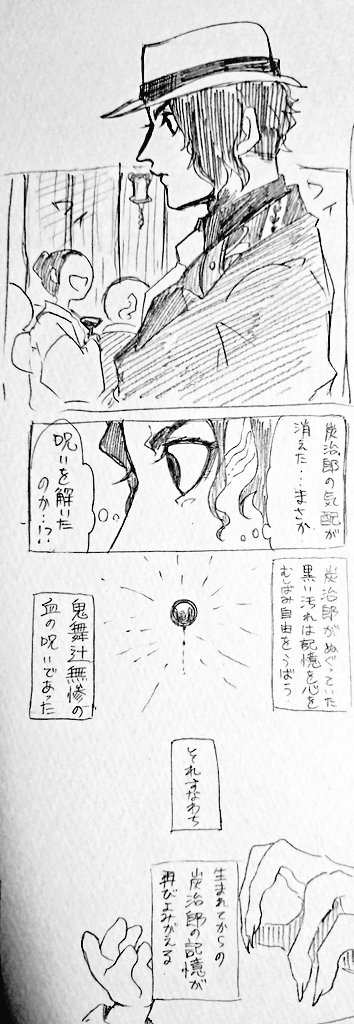 ワイ
ワイ
炭治郎の気配が
消えた…まさか
呪いを解いた
のか…!?
炭治郎がぬぐっていた
黒い汚れは記憶を心を
むしばみ自由をうばう
鬼舞辻無惨の
血の呪いであった
それすなわち
生まれてからの
炭治郎の記憶が
再びよみがえる